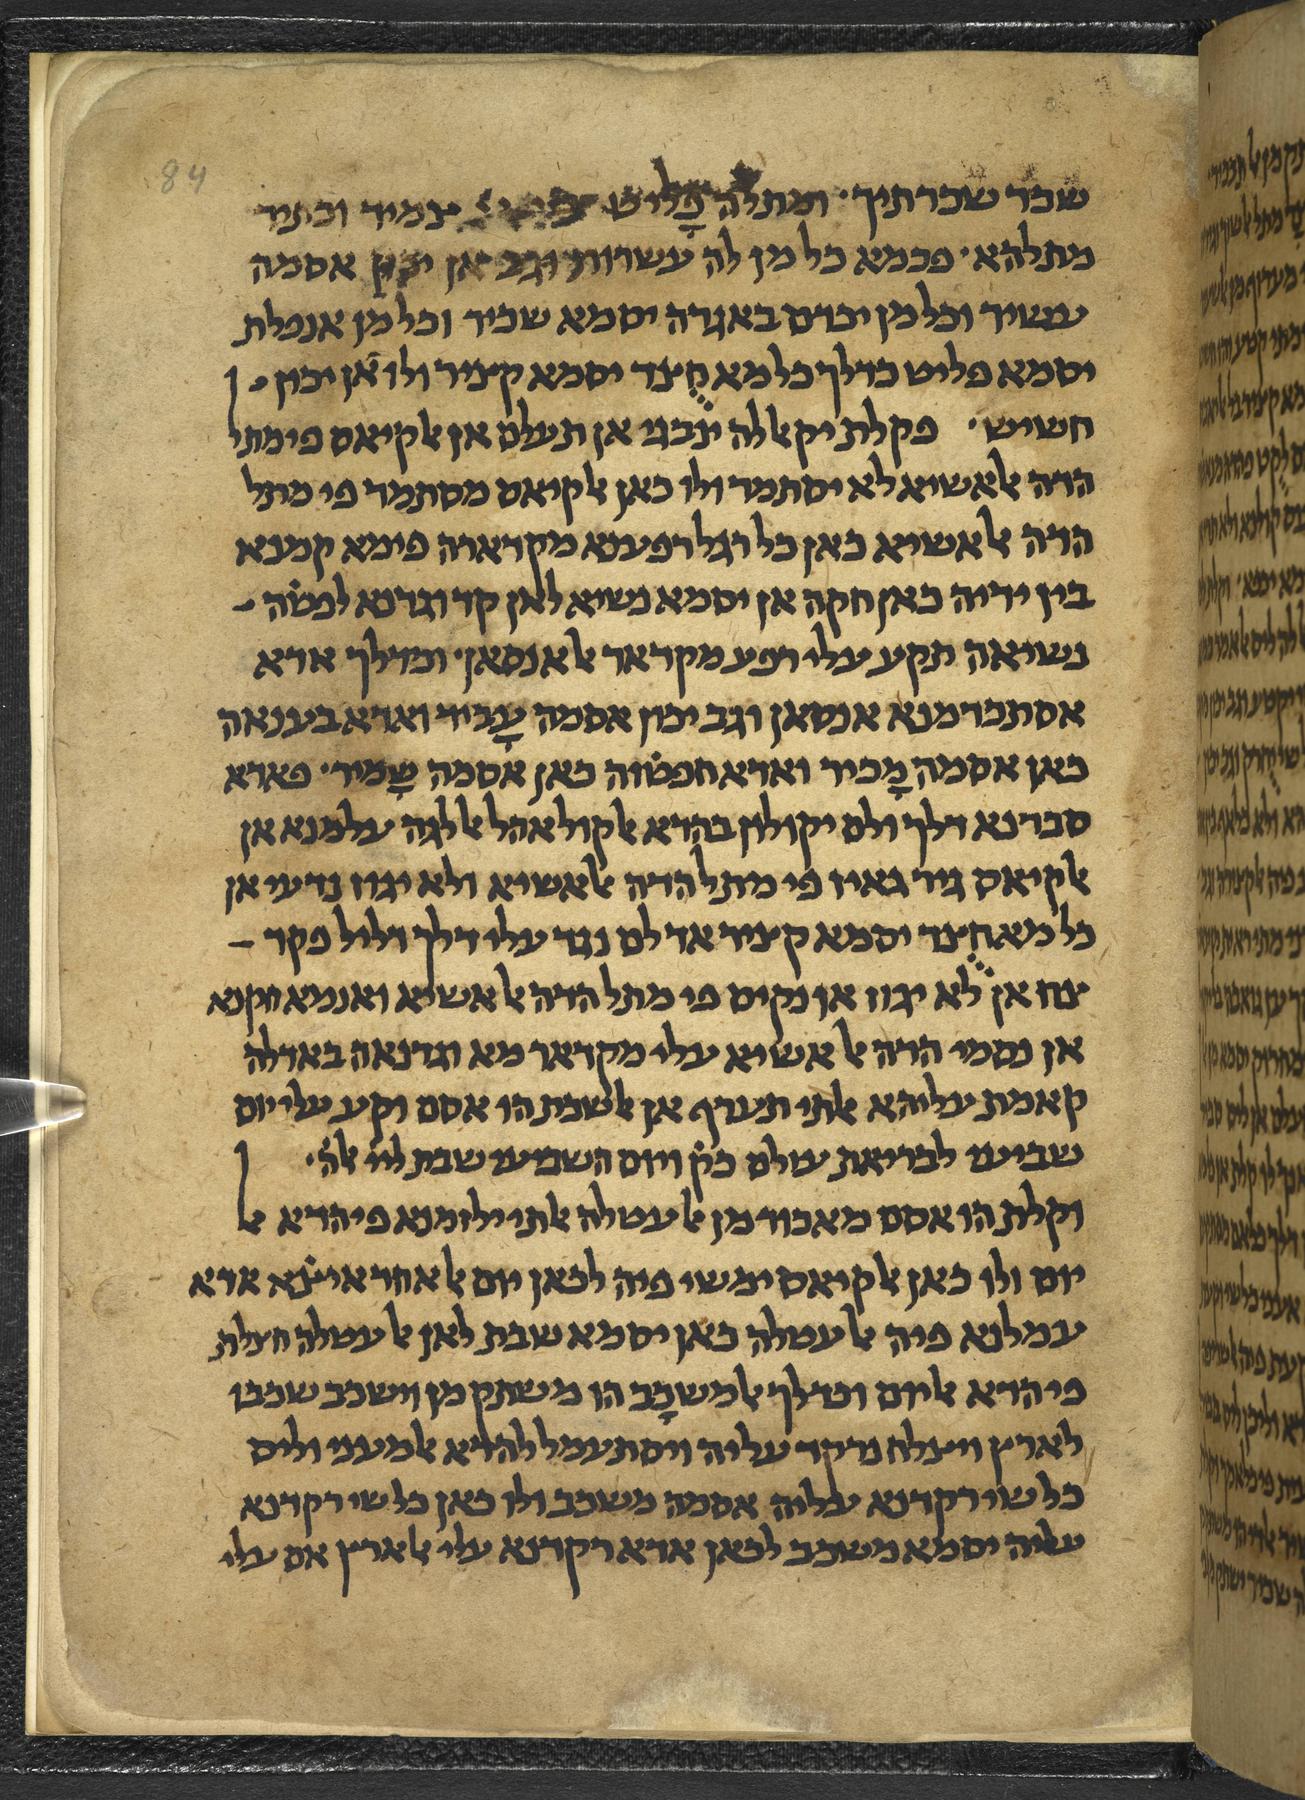 84
שכר שכרתיך· ומתלה פָליט צמיד וכתיר
מתלהא· פכמא כל מן לה עשרות וגב אן יכון אסמה
עשיר וכל מן יכדם באגרה יסמא שכיר וכל מן אנפלת
יסמא פליט כדלך כל מא חֻצד יסמא קציר ולו אן יכון
חשיש· פקלת יקאל לה ינבגי אן תעלם אן אלקיאס פי מתל
הדה אלאשיא לא יסתמר ולו כאן אלקיאס מסתמר פי מתל
הדה אלאשיא כאן כל רגל רפענא מקדארה פימא קמנא
בין ידיה כאן חקה אן יסמא נשיא לאן קד וגדנא לפטׄה
נשיאה תקע עלי רפע מקדאר אלאנסאן· וכדלך אדא
אסתכדמנא אנסאן וגב יכון אסמה עָביד ואדא בענאה
כאן אסמה מָכיר ואדא חפטׄוה כאן אסמה שָמיר· פאדא
סברנא דלך ולם יקולון בהדא אלקול אהל אללגה עלמנא אן
אלקיאס גיר גאיז פי מתל הדה אלאשיא ולא יגוז נדעי אן
כל מא חֻצד יסמא קציר אד לם נגד עלי דלך דליל פקד
צח אן לא יגוז אן נקיס פי מתל הדה אלאשיא ואנמא חקנא
אן נסמי הדה אלאשיא עלי מקדאר מא וגדנאה באדלה
קאמת עליהא אלתי תערף אן אלשבת הו אסם וקע עלי יום
שביעי לבריאת עולם כקׄ ויום השביעי שבת לייׄ אלהׄ·
וקלת הו אסם מאכוד מן אלעטלה אלתי ילזמנא פי הדא אל
יום ולו כאן אלקיאס ימשי פיה לכאן יום אלאחד איצׄא אדא
עמלנא פיה אלעטלה כאן יסמא שבת לאן אלעטלה חצלת
פי הדא אליום וכדלך אלמשכָב הו משתק מן וישכב שכבו
לארץ ויצלח נרקד עליה ויסתעמל להדא אלמעני וליס
כל שי רקדנא עליה אסמה משכב ולו כאן כל שי רקדנא
עליה יסמא משכב לכאן אדא רקדנא עלי אלארץ אם עלי